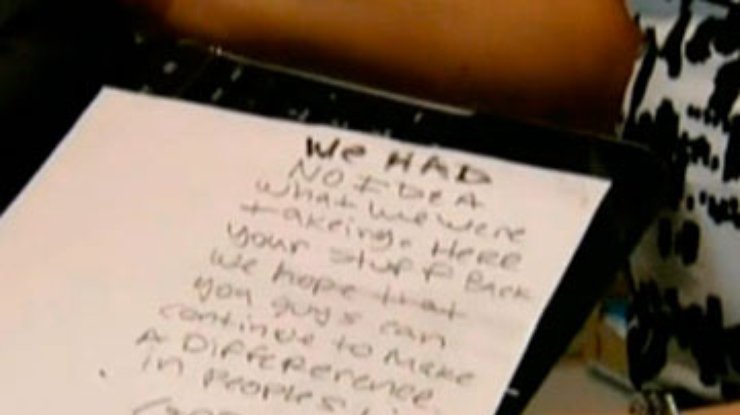 We HAD
NO IDeA
what we were
takeing. Here
your stuff Back
we hope that
you guys can
continue to Make
A Differerence
in peoples